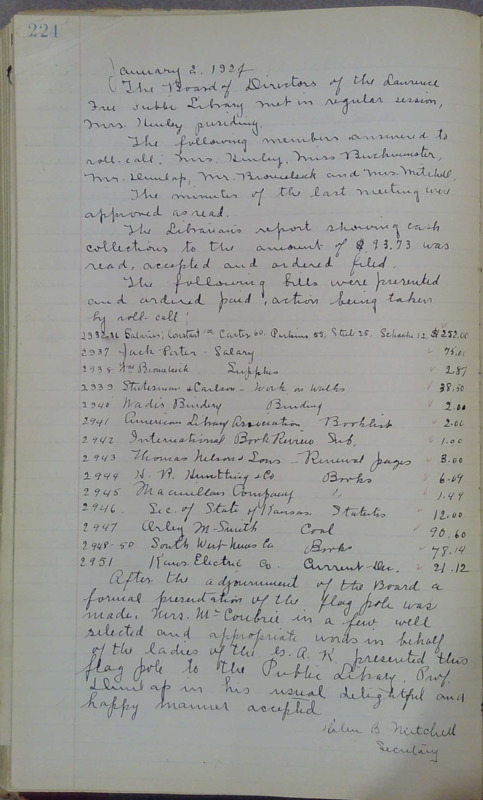 224
January 2. 1924
The Board of Directors of the Lawrence
Free Public Library met in regular session,
Mrs. Henley presiding.
The following members answered to
roll-call: Mrs. Henley, Miss Buchwmster,
Mr. Dunlap, Mr. Bromelsick and Mrs. Mitchell.
The minutes of the last meeting were
approved as read.
The Librarian's report showing cash
collections to the amount of $93.73 was
read, accepted and ordered filed.
The following bills were presented
and ordered paid, action being taken
by roll-call:
2932-36 Salaries; Constant Carter 60. Perkins 55. Steel 25. 12. $252.00
2937 Jack Porter - Salary 75.00
2938 Wm Bromelsick Supplies 2.87
2939 Stutesman & Carlson - Work on walks 38.50
2940 Wade's Bindery Binding 2.00
2941 American Library Association Booklist 2.00
2942 International Book Review Sub. 1.00
2943 Thomas Nelson & Sons - Renewal pages 3.00
2944 H. R. Huntting & Co Books 6.09
2945 Macmillan Company " 1.49
2946. Sec. of State of Kansas. Statutes 12.00
2947 Orley M. Smith Coal 90.60
2948-50 South West News Co Books 78.14
2951 Kans. Electric Co. Current-Dec. 21.12
After the adjournment of the Board a
formal presentation of the flag pole was
made. Mrs. Mc Conbrie in a few well
selected and appropriate words in behalf
of the ladies of the G. A. R. presented this
flag pole to the Public Library. Prof.
Dunlap in his usual delightful and
happy manner accepted
Helen B. Mitchell
Secretary